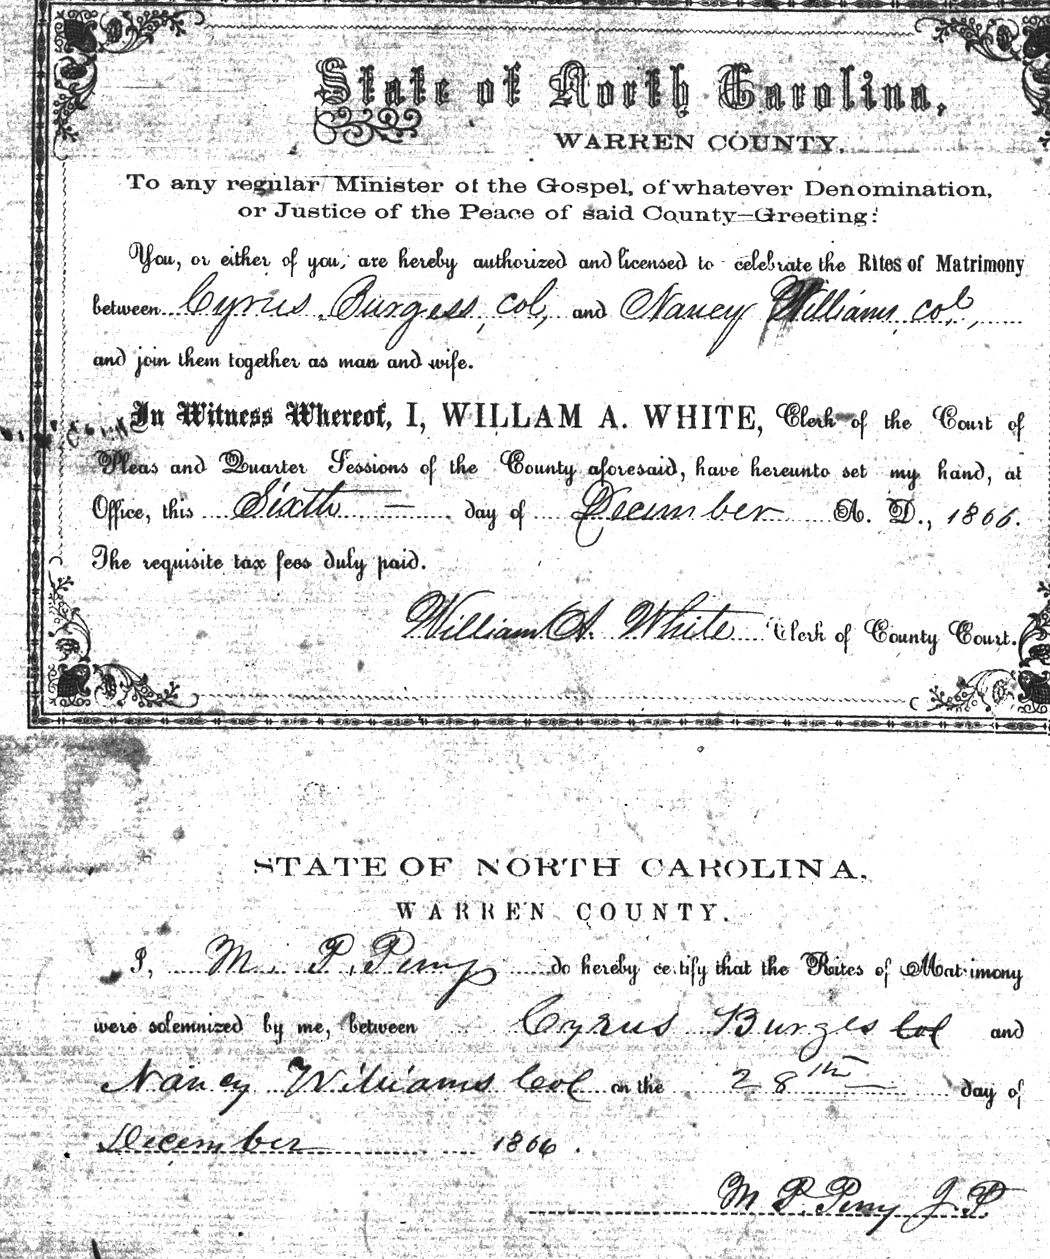 State of North Carolina,
WARREN COUNTY.
To any regular Minister of the Gospel, of whatever Denomination,
or Justice of the Peace of said County—Greeting:
You, or either of you, are hereby authorized and licensed to celebrate the Rites of Matrimony
between Cyrus Burgess, col, and Nancy Williams col,
and join them together as man and wife.
In Witness Whereof, I, WILLAM A. WHITE, Clerk of the Court of
Pleas and Quarter Sessions of the County aforesaid, have hereunto set my hand, at
Office, this Sixth — day of December A. D., 1866.
The requisite tax fees duly paid.
William A. White Clerk of County Court.
STATE OF NORTH CAROLINA,
WARREN COUNTY.
I, M. P. Perry do hereby certify that the Rites of Matrimony
were solemnized by me, between Cyrus Burges Col and
Nancy Williams Col on the 28th day of
December 1866.
M P. Perry J. P.